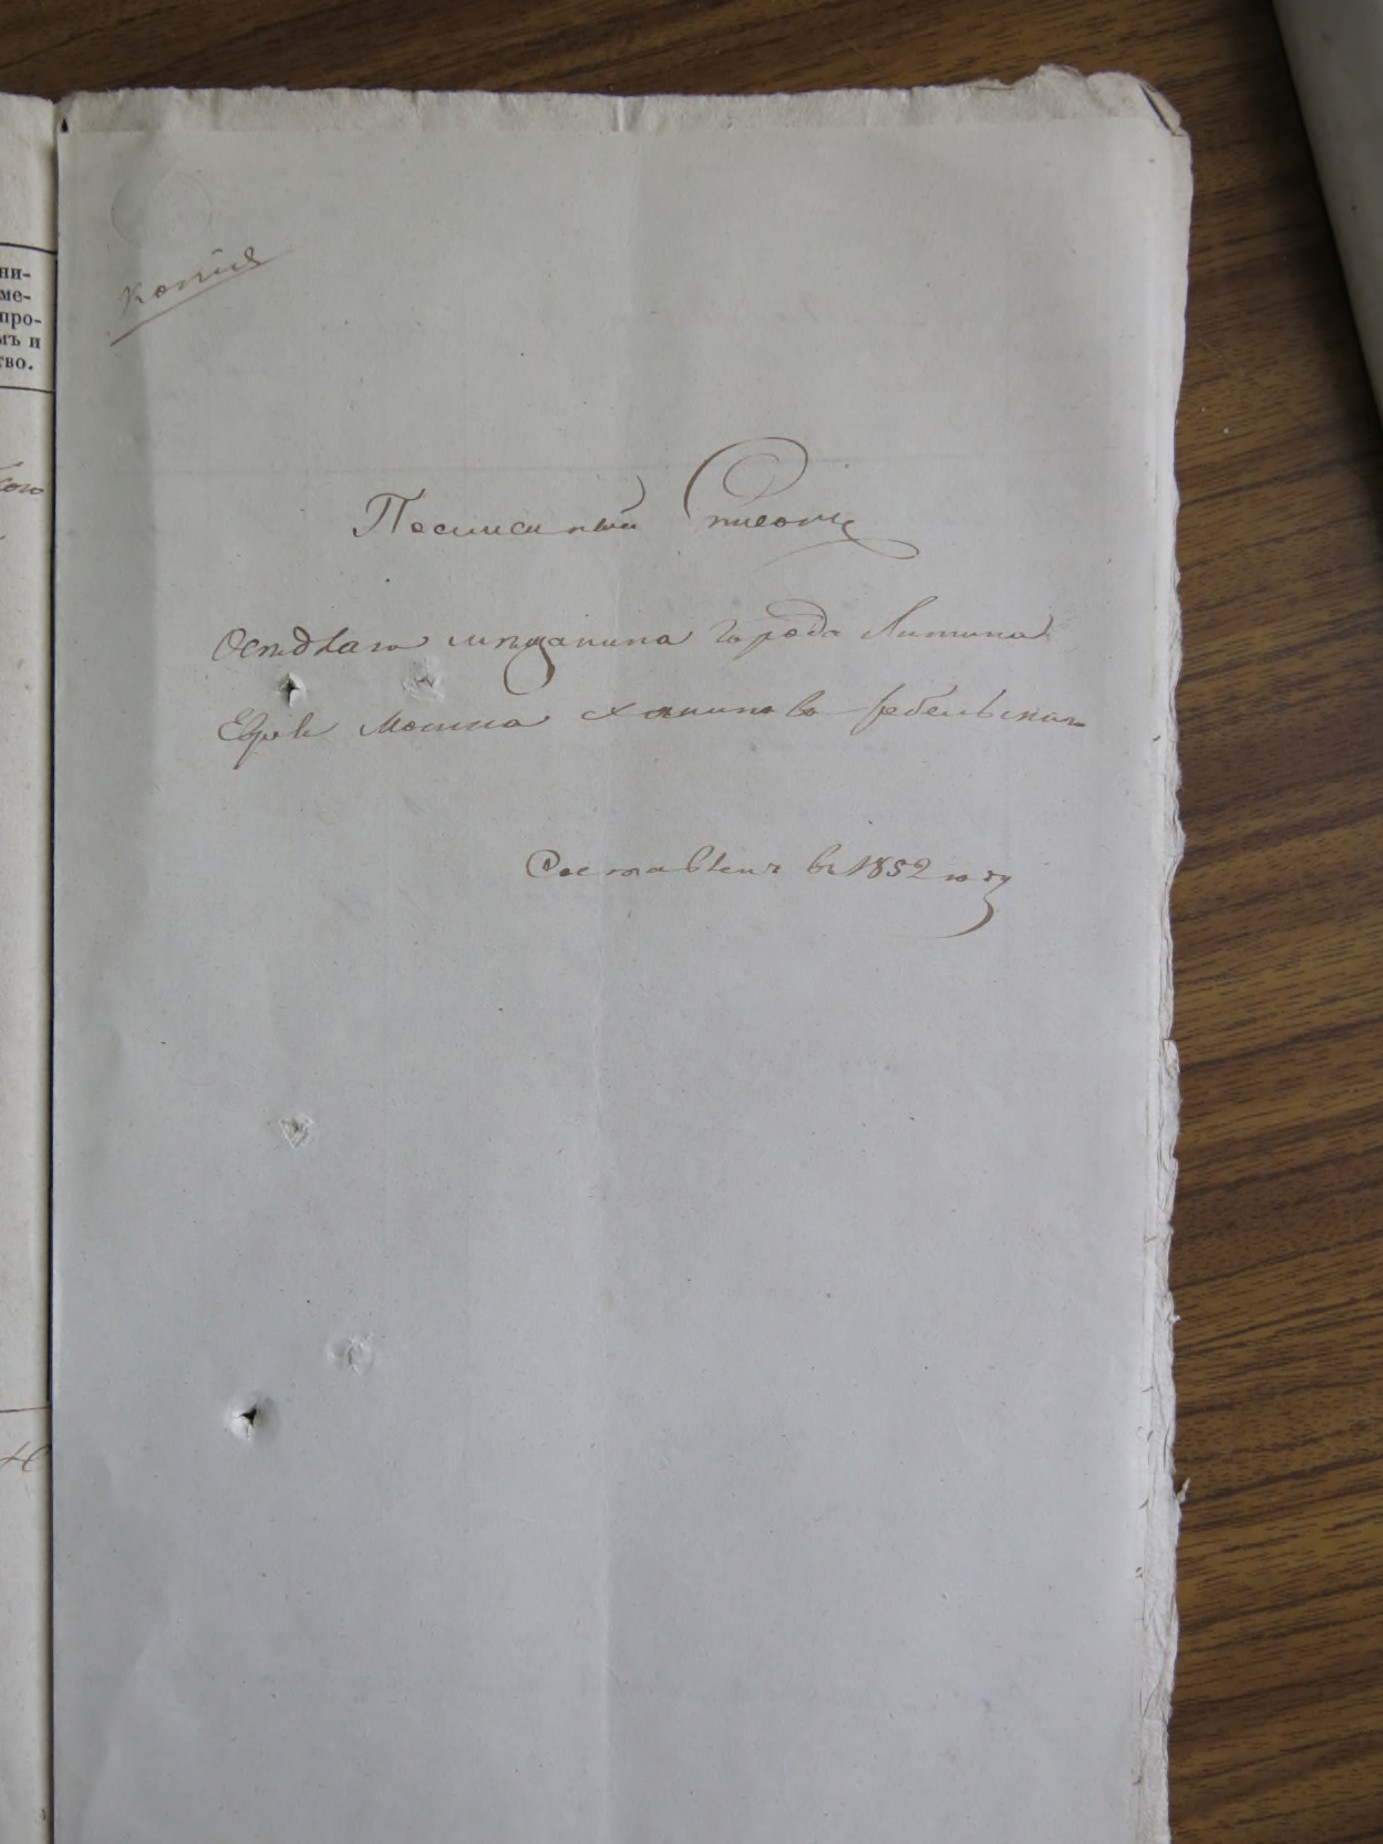 ни-
ме-
про-
мъ и
тво.
копія
Посемейный Списокъ
Осѣдлаго мѣщанина города Литина
Еврея Мошка Хаимова
Составленъ въ 1852 году